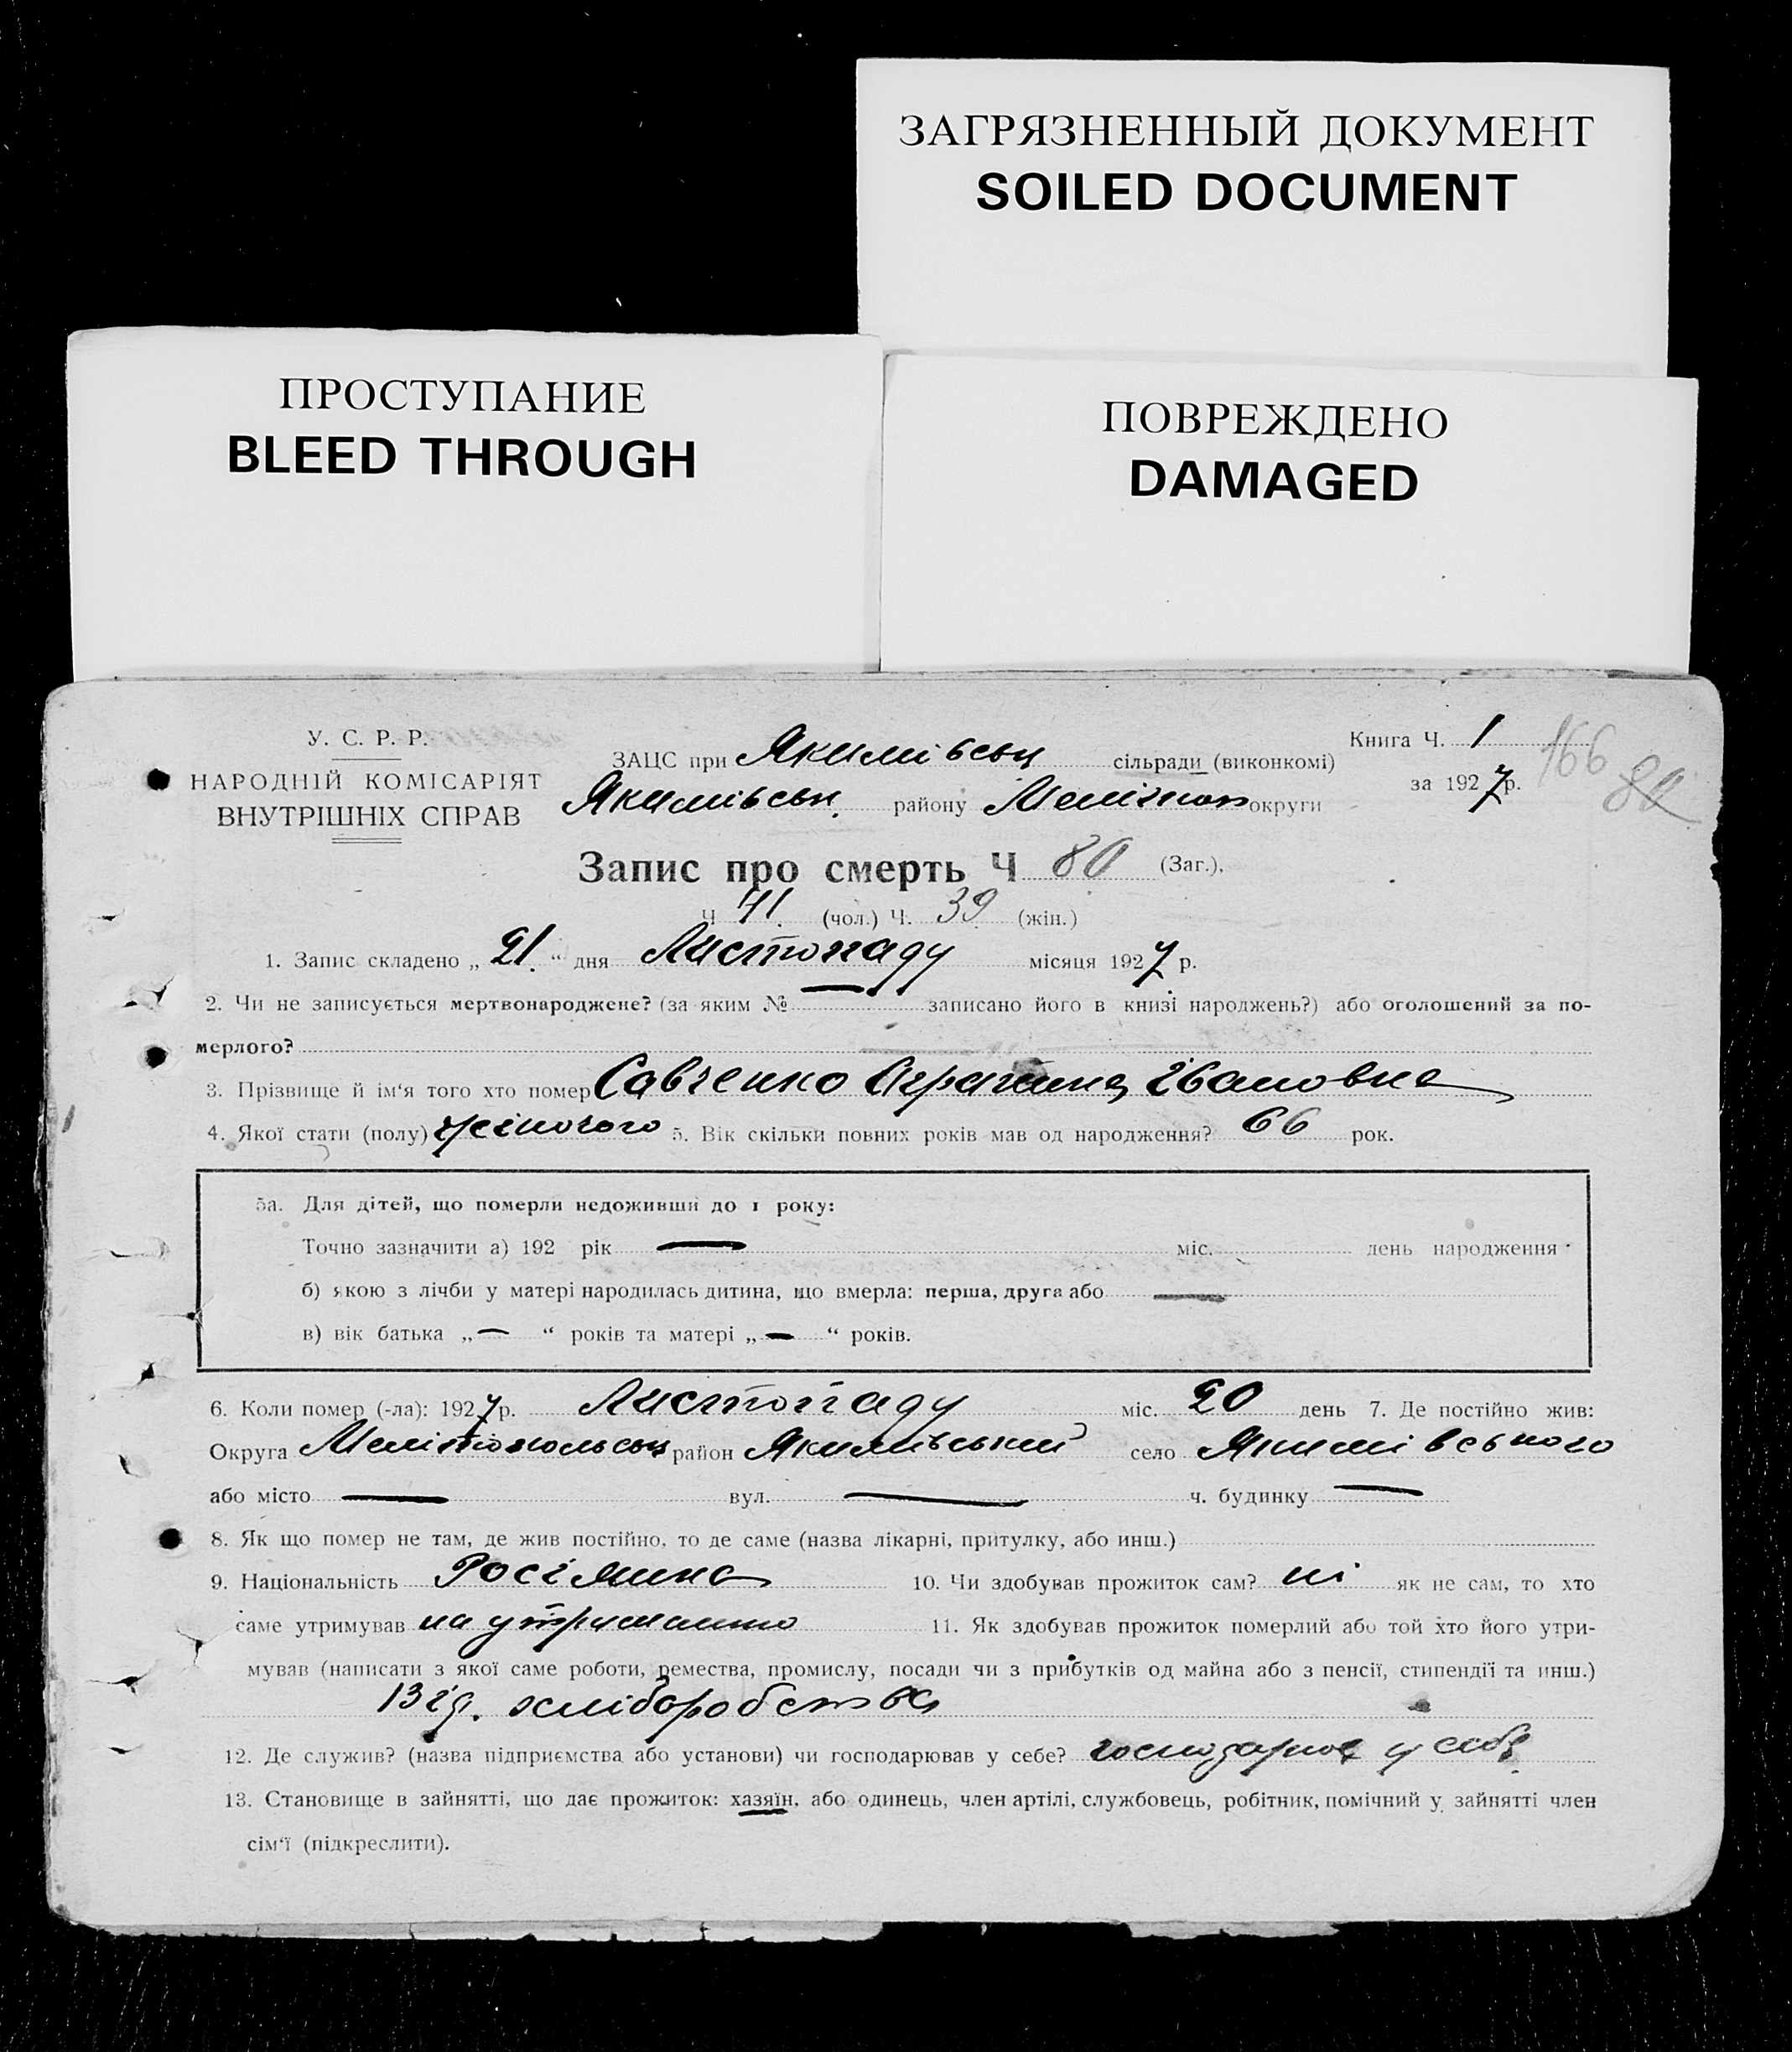 ЗАГРЯЗНЕННЫЙ ДОКУМЕНТ
SOILED DOCUMENT
ПРОСТУПАНИЕ
BLEED THROUGH
ПОВРЕЖДЕНО
DAMAGED
У. С. Р. Р.
НАРОДНІЙ КОМІСАРІЯТ
ВНУТРІШНІХ СПРАВ
ЗАЦС при Якимівськ сільради (виконкомі)
Якимівськ. району Мелітоп округи
Книга Ч. 1
за 1927 р.
166
80
Запис про смерть Ч 80 (Заг.),
Ч 41. (чол.) Ч. 39 (жін.)
1. Запис складено „ 21. “ дня Листопаду місяця 1927 р.
2. Чи не записується мертвонароджене? (за яким № — записано його в книзі народжень?) або оголошений за по-
мерлого?
3. Прізвище й ім‘я того хто помер Савченко Аграпина Івановна
4. Якої стати (полу) жіночого 5. Вік скільки повних років мав од народження? 66 рок.
5а. Для дітей, що померли недоживши до 1 року:
Точно зазначити а) 192 рік — міс. день народження
б) якою з лічби у матері народилась дитина, що вмерла: перша, друга або —
в) вік батька „ — “ років та матері „ — “ років.
6. Коли помер (-ла): 1927 р. Листопаду міс. 20 день 7. Де постійно жив:
Округа Мелітопольськ район Якимівський село Якимівського
або місто — вул. — ч. будинку —
8. Як що помер не там, де жив постійно, то де саме (назва лікарні, притулку, або инш.)
9. Національність Росіянка 10. Чи здобував прожиток сам? ні як не сам, то хто
саме утримував на утриманню 11. Як здобував прожиток померлий або той хто його утри-
мував (написати з якої саме роботи, ремества, промислу, посади чи з прибутків од майна або з пенсії, стипендії та инш.)
Від. хліборобства
12. Де служив? (назва підприємства або установи) чи господарював у себе? у себе
13. Становище в зайнятті, що дає прожиток: хазяїн, або одинець, член артілі, службовець, робітник, помічний у зайнятті член
сім‘ї (підкреслити).